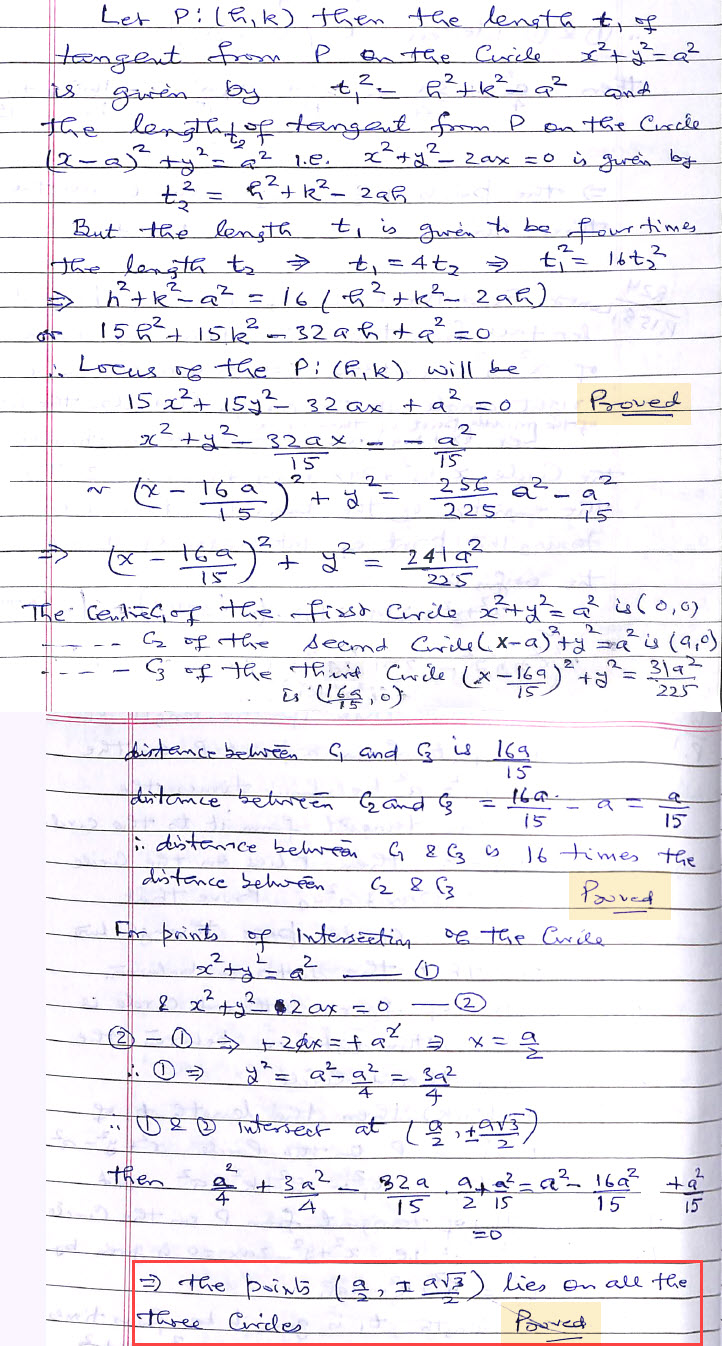 Let P: (h, k) then the length t₁ of
tangent from P on the Circle x²+y²=a²
is given by t₁² = h²+k²-a² and
the length t₂ of tangent from P on the Circle
(x-a)²+y²=a² i.e. x²+y²-2ax=0 is given by
t₂² = h²+k²-2ah
But the length t₁ is given to be four times
the length t₂ ⇒ t₁=4t₂ ⇒ t₁²=16t₂²
⇒ h²+k²-a² = 16(h²+k²-2ah)
or 15h²+15k²-32ah+a²=0
∴ Locus of the P: (h, k) will be
15x²+15y²-32ax+a²=0 Proved
x²+y²-32ax/15 = -a²/15
~ (x-16a/15)²+y² = 256/225 a² - a²/15
⇒ (x-16a/15)²+y² = 241a²/225
The Centre C₁ of the first Circle x²+y²=a² is (0,0)
---- C₂ of the second Circle (x-a)²+y²=a² is (a,0)
---- C₃ of the third Circle (x-16a/15)²+y²=31a²/225
is (16a/15, 0)
distance between C₁ and C₃ is 16a/15
distance between C₂ and C₃ = 16a/15 - a = a/15
∴ distance between C₁ & C₃ is 16 times the
distance between C₂ & C₃ Proved
For points of Intersection of the Circle
x²+y²=a² —— ①
& x²+y²-2ax=0 —— ②
②-① ⇒ +2ax=+a² ⇒ x=a/2
∴ ① ⇒ y²=a²-a²/4=3a²/4
∴ ① & ② intersect at (a/2, ±a√3/2)
then a²/4+3a²/4-32a/15·a/2+a²/15=a²-16a²/15+a²/15
=0
⇒ the points (a/2, ±a√3/2) lies on all the
three Circles Proved